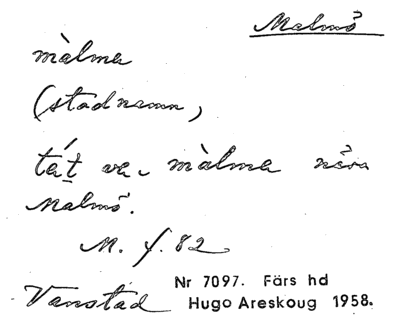 Malmö
màlma
(stadnamn,
tát̲ va màlma nära
Malmö.
M. f. 82
Vanstad
Nr 7097. Färs hd
Hugo Areskoug 1958.